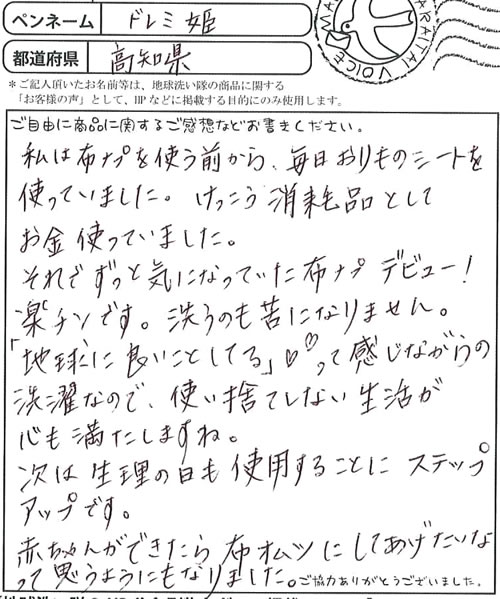 ペンネーム ドレミ姫
都道府県 高知県
MA
ARAITAI VOICE
＊ご記人頂いたお名前等は、地球洗い隊の商品に関する
「お客様の声」として、HPなどに掲載する目的にのみ使用します。
ご自由に商品に関するご感想などお書きください。
私は布ナプを使う前から、毎日おりものシートを
使っていました。けっこう消耗品として
お金使っていました。
それでずっと気になっていた布ナプデビュー！
楽チンです。洗うのも苦になりません。
「地球に良いことしてる」♡♡って感じながらの
洗濯なので、使い捨てしない生活が
心も満たしますね。
次は生理の日も使用することにステップ
アップです。
赤ちゃんができたら布オムツにしてあげたいな
って思うようにもなりました。
ご協力ありがとうございました。